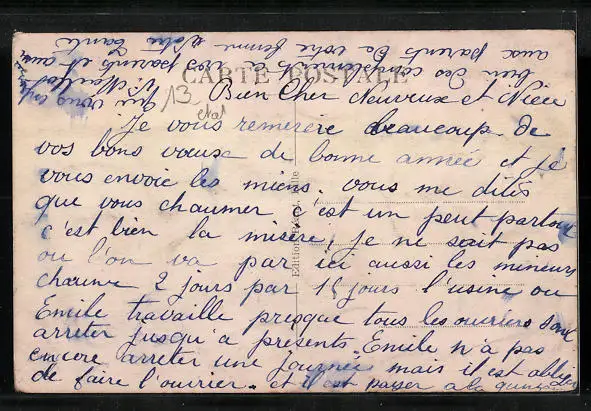 CARTE POSTALE
13
Bien Cher Neuveux et Niece
Je vous remercie beaucoup de
vos bons vœux de bonne année et je
vous envoie les miens. vous me dites
que vous chaumer c'est un peut partout
c'est bien la misére, je ne sait pas
ou l'on va par ici aussi les mineurs
chaume 2 jours par 15 jours l'usine ou
Emile travaille presque tous les ouvriers sont
arreter jusqu'a présents Emile n'a pas
encore arreter une journée mais il est obliger
de faire l'ouvrier. et il est payer a la quinzaine
bien des
aux parents de votre femme Votre Tante
Edition